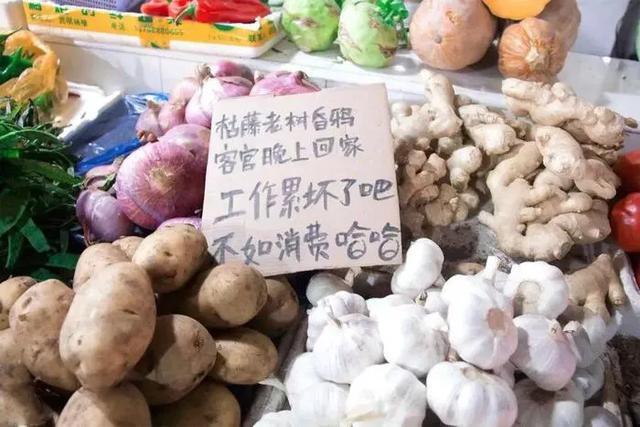 枯藤老树昏鸦
客官晚上回家
工作累坏了吧
不如消费哈哈